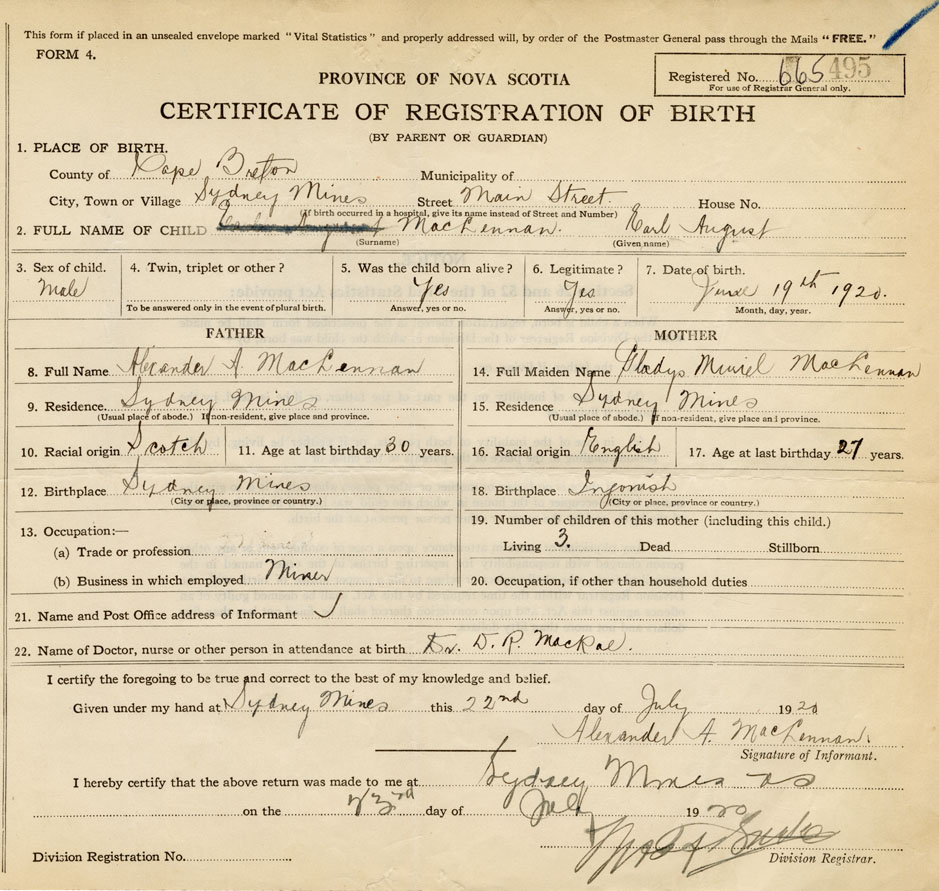 This form if placed in an unsealed envelope marked "Vital Statistics" and properly addressed will, by order of the Postmaster General pass through the Mails "FREE."
FORM 4.
PROVINCE OF NOVA SCOTIA
Registered No. 665 495
For use of Registrar General only.
CERTIFICATE OF REGISTRATION OF BIRTH
(BY PARENT OR GUARDIAN)
1. PLACE OF BIRTH.
County of Cape Breton Municipality of
City, Town or Village Sydney Mines Street Main Street. House No.
(If birth occurred in a hospital, give its name instead of Street and Number)
2. FULL NAME OF CHILD MacLennan. Earl August
(Surname) (Given name)
3. Sex of child. 4. Twin, triplet or other? 5. Was the child born alive? 6. Legitimate? 7. Date of birth.
Male Yes Yes June 19th 1920.
To be answered only in the event of plural birth. Answer, yes or no. Answer, yes or no. Month, day, year.
FATHER MOTHER
8. Full Name Alexander A. MacLennan 14. Full Maiden Name Gladys Muriel MacLennan
9. Residence. Sydney Mines 15. Residence Sydney Mines
(Usual place of abode.) If non-resident, give place and province. (Usual place of abode.) If non-resident, give place and province.
10. Racial origin Scotch 11. Age at last birthday 30 years. 16. Racial origin English 17. Age at last birthday 27 years.
12. Birthplace Sydney Mines 18. Birthplace Ingonish
(City or place, province or country.) (City or place, province or country.)
13. Occupation:— 19. Number of children of this mother (including this child.)
(a) Trade or profession Living 3. Dead Stillborn
(b) Business in which employed Miner 20. Occupation, if other than household duties
21. Name and Post Office address of Informant
22. Name of Doctor, nurse or other person in attendance at birth Dr. D. R. MacRae.
I certify the foregoing to be true and correct to the best of my knowledge and belief.
Given under my hand at Sydney Mines this 22nd day of July 1920
Alexander A. MacLennan.
Signature of Informant.
I hereby certify that the above return was made to me at Sydney Mines
on the 23rd day of July 1920
Division Registration No. Division Registrar.